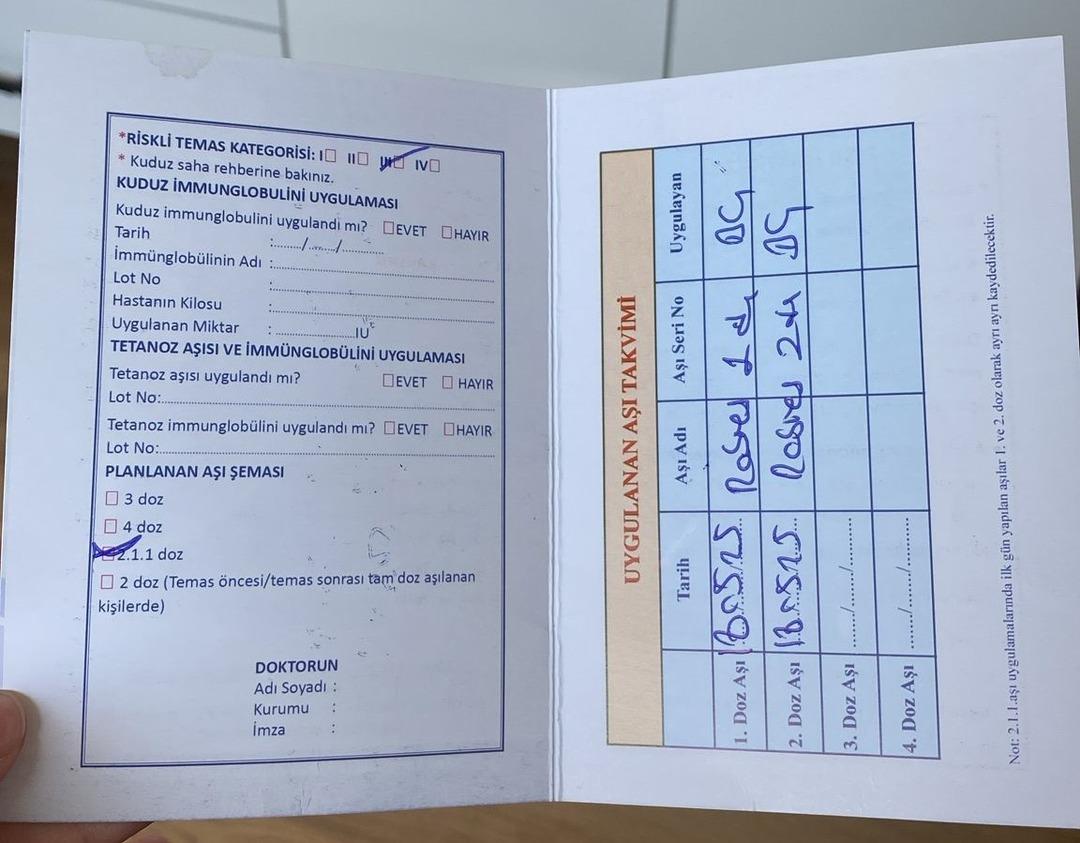 *RİSKLİ TEMAS KATEGORİSİ: I☐ II☐ III☐ IV☐
* Kuduz saha rehberine bakınız.
KUDUZ İMMUNGLOBULİNİ UYGULAMASI
Kuduz immunglobulini uygulandı mı? ☐EVET ☐HAYIR
Tarih :........./........./............
İmmünglobülinin Adı :
Lot No :
Hastanın Kilosu :
Uygulanan Miktar :......................IU
TETANOZ AŞISI VE İMMÜNGLOBÜLİNİ UYGULAMASI
Tetanoz aşısı uygulandı mı? ☐EVET ☐ HAYIR
Lot No:
Tetanoz immunglobülini uygulandı mı? ☐EVET ☐HAYIR
Lot No:
PLANLANAN AŞI ŞEMASI
☐ 3 doz
☐ 4 doz
☐ 2.1.1 doz
☐ 2 doz (Temas öncesi/temas sonrası tam doz aşılanan
kişilerde)
DOKTORUN
Adı Soyadı :
Kurumu :
İmza :
UYGULANAN AŞI TAKVİMİ
Tarih Aşı Adı Aşı Seri No Uygulayan
1. Doz Aşı
2. Doz Aşı
3. Doz Aşı ......./......./.........
4. Doz Aşı ......./......./.........
Not: 2.1.1.aşı uygulamalarında ilk gün yapılan aşılar 1. ve 2. doz olarak ayrı ayrı kaydedilecektir.